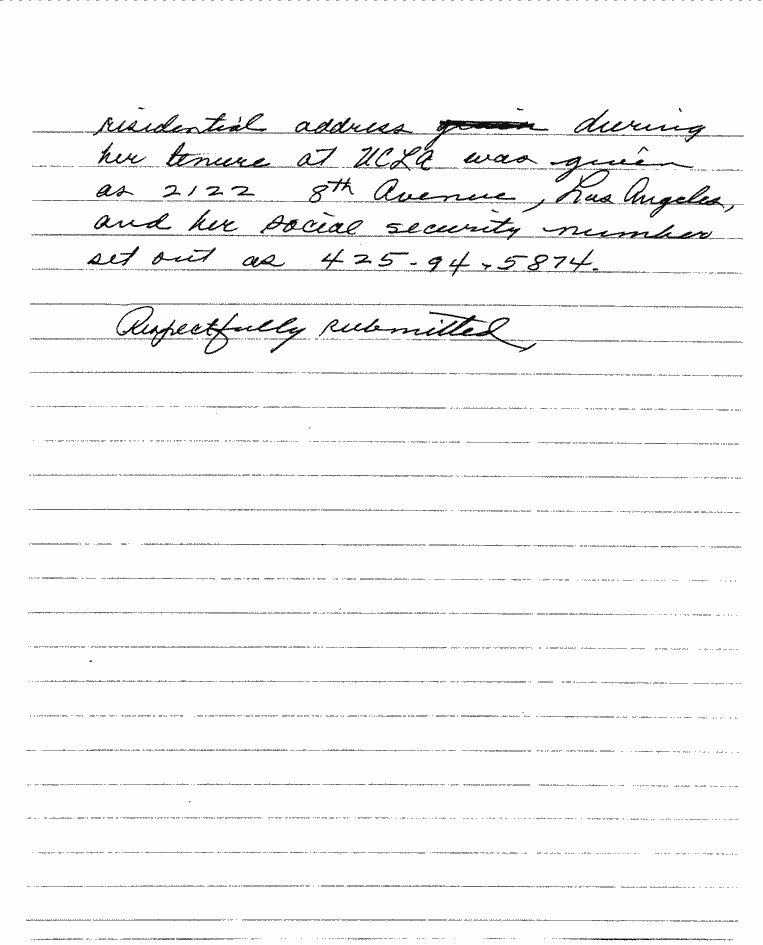 residential address during
her tenure at UCLA was given
as 2122 8th Avenue, Los Angeles,
and her social security number
set out as 425-94-5874.
Respectfully submitted,